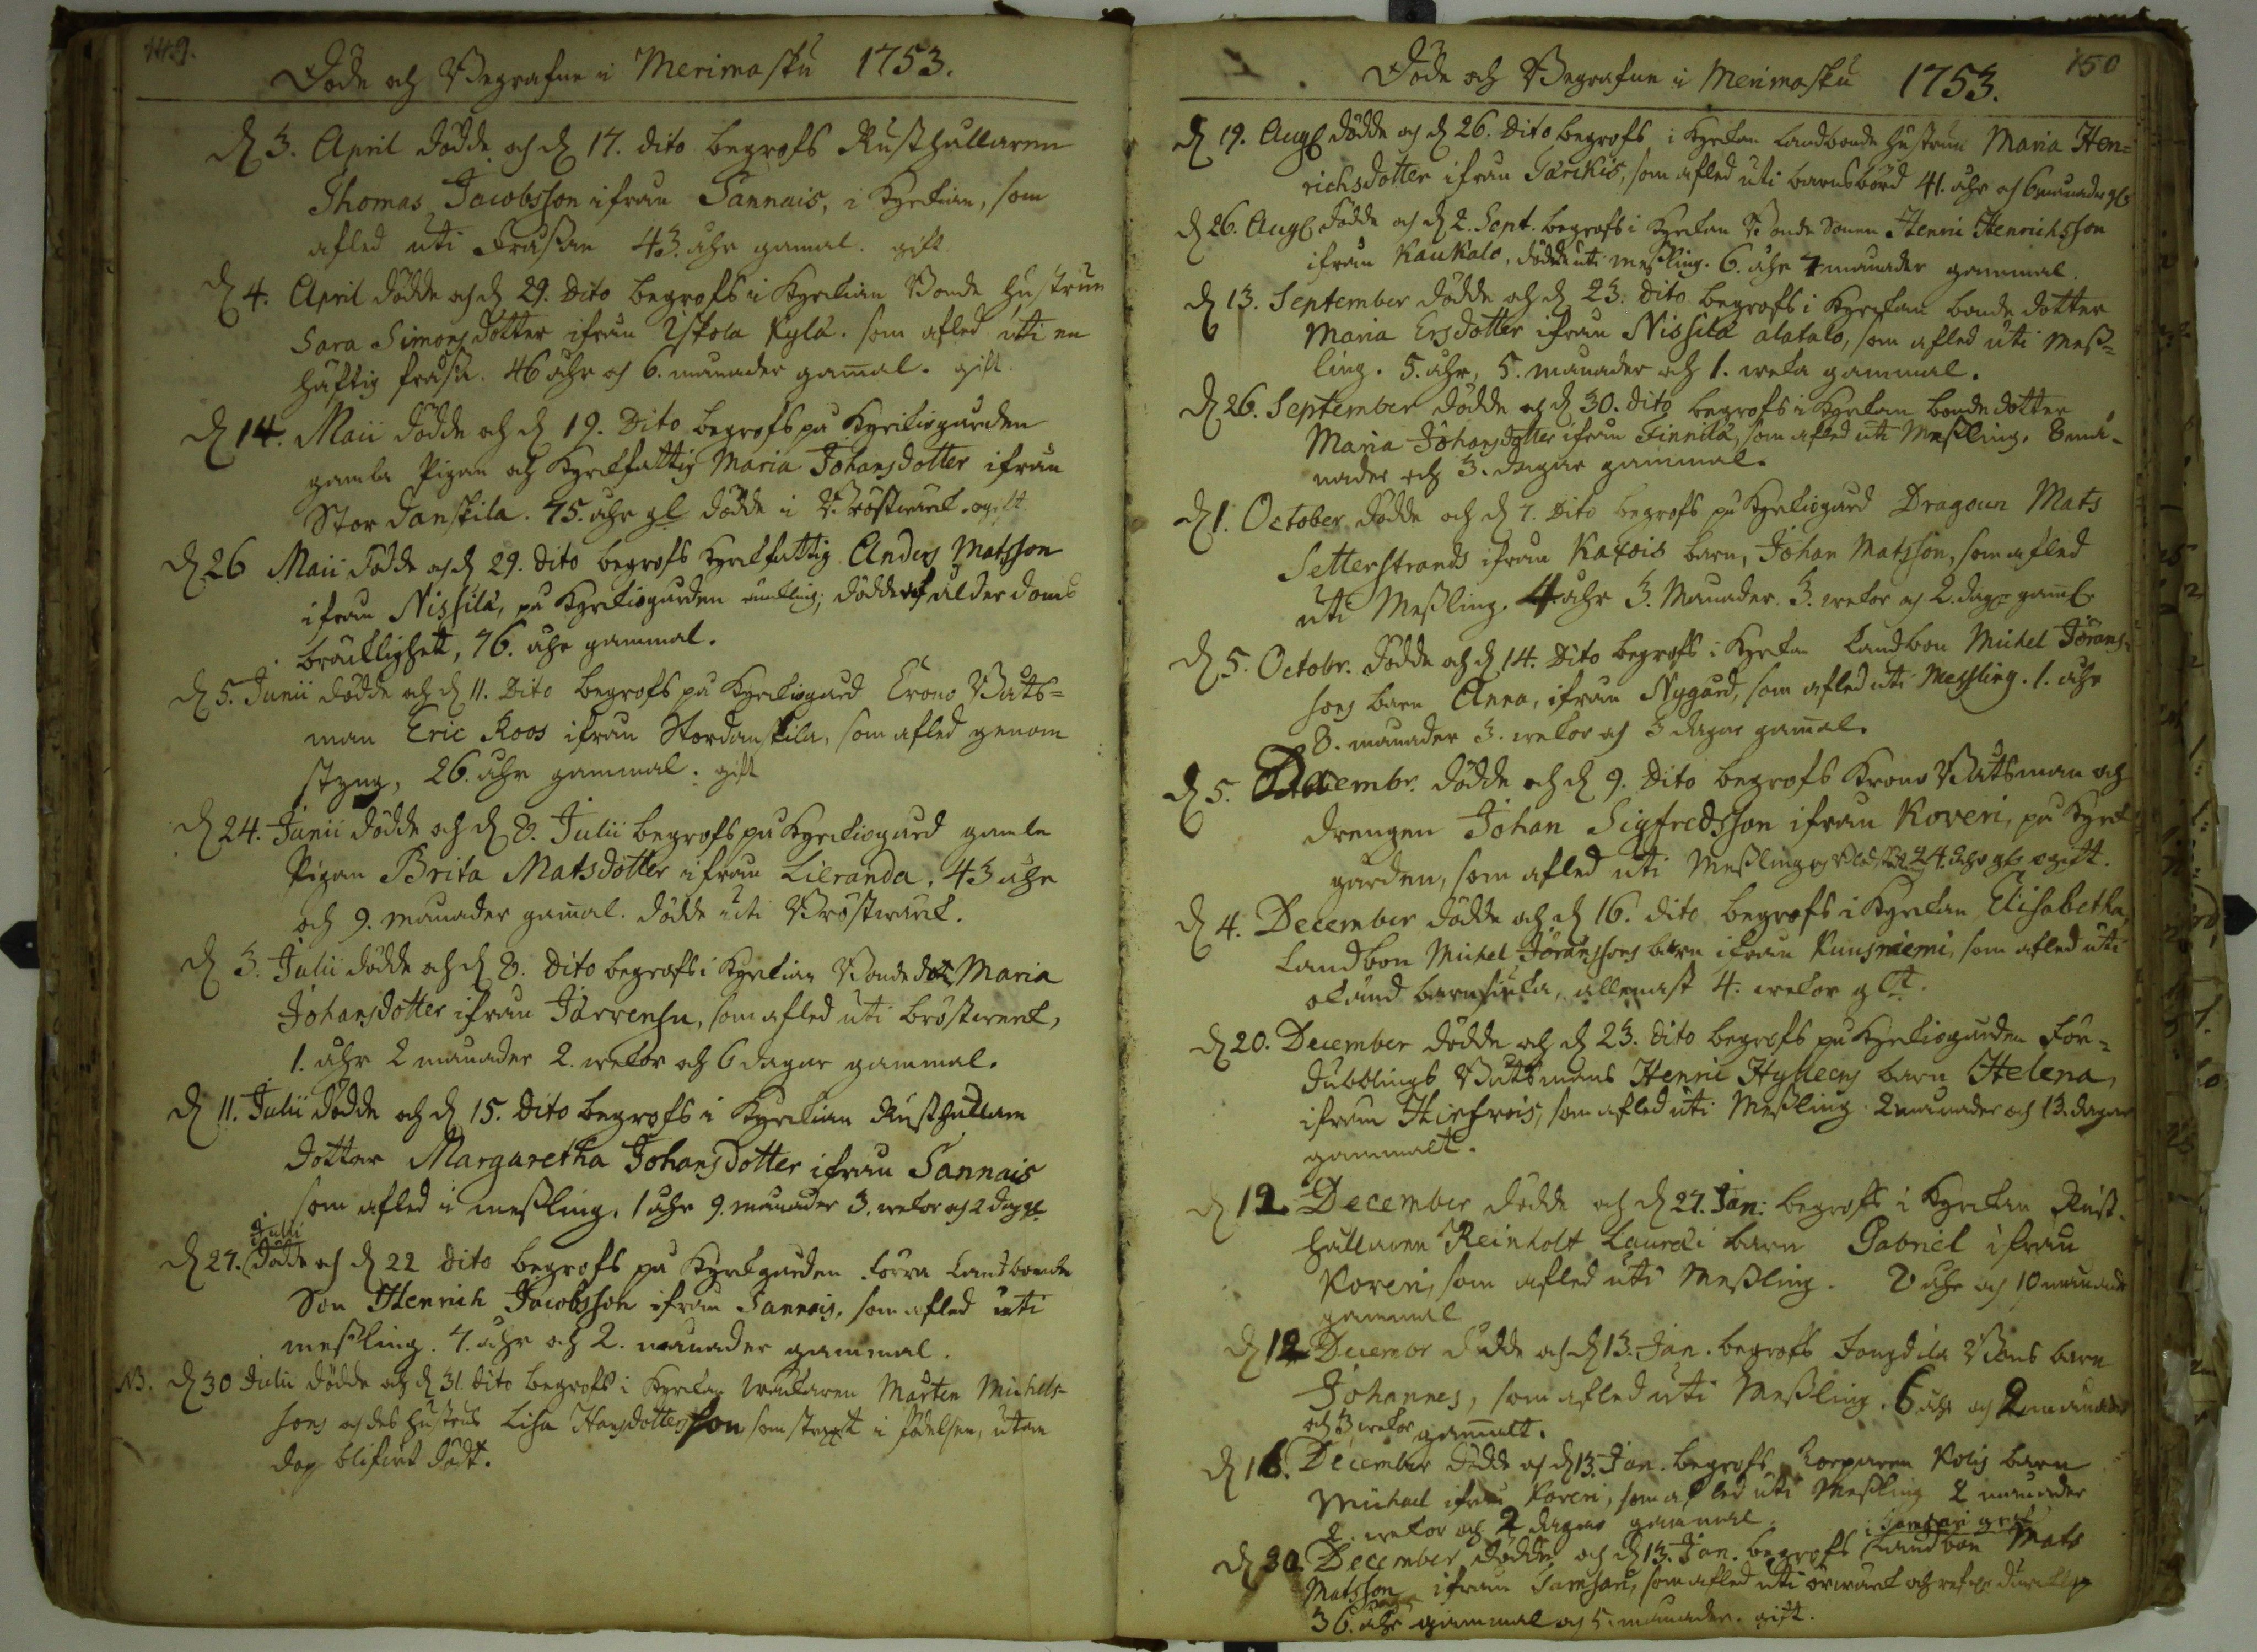 149.
Döde och Begrafne i Merimasku 1753.
D 3. April dödde och d 17. dito begrofs Rusthållaren
Thomas Jacobsson ifrån Sannais, i Kyrkian, som
afled uti Fråssan 43. åhr gamal. gift
D 4. April dödde och d 29. Dito begrofs i Kyrkian Bonde hustrun
Sara Simonsdotter ifrån Iskola Kylä. som afled uti en
häftig fråssa. 46 åhr och 6. månader gamal. gift.
D 14. Maii dödde och d 19. Dito begrofs på Kyrkiogården
gamla Pigan och Kyrckfattig Maria Johansdotter ifrån
Stor Danskila. 75. åhr gl dödde i Bröstwärck. ogift
D 26 Maii dödde och d 29. dito begrofs Kyrckfattig Anders Matsson
ifrån Nissilä, på Kyrkiogården enckling, dödde af ålderdoms
bräcklighet, 76. åhr gammal.
D 5. Junii dödde och d 11. Dito begrofs på Kyrckiogård Crono Båts=
man Eric Roos ifrån Stordanskila, som afled genom
styng, 26. åhr gammal. gift
D 24. Junii dödde och d 8. Julii begrofs på Kyrckiogård gamle
Pigan Brita Matsdotter ifrån Lieranda, 43 åhr
och 9. månader gamal. dödde uti Bröstwärck.
D 3. Julii dödde och d 8. Dito begrofs i Kyrckian Bonde dotter Maria
Johansdotter ifrån Järvensu, som afled uti bröstwerck,
1. åhr 2 månader 2. wekor och 6 dagar gammal.
D 11. Julii dödde och d 15. Dito begrofs i Kyrckian Rusthållare
dotter Margaretha Johansdotter ifrån Sannais
som afled i messling, 1 åhr 9. månader 3. wekor och 2 dag gl.
Julii
D 27. dödde och d 22 dito begrofs på Kyrkgården förra Landbonde
Son Henrich Jacobsson ifrån Sannais, som afled uti
messling. 7. åhr och 2. månader gammal.
NB. D 30 Julii dödde och d 31. dito begrofs i Kyrkan Mårten Michels-
sons och des hustrus Lisa Hansdotters son som straxt i födelsen, utan
dop blifwit dödt.
150
Döde och Begrafne i Merimasku 1753.
D 19. Aug. dödde och d 26. Dito begrofs i Kyrckan Landbonde hustrun Maria Hen=
richsdotter ifrån Särckis, som afled uti barnsbörd 41. åhr och 6 månader gl
D 26. Aug. dödde och d 2. Sept. begrofs i Kyrckan Bonde Sonen Henric Henrichsson
ifrån Kaukalo, dödde uti messling. 6. åhr 7 månader gammal.
D 13. September dödde och d 23. dito begrofs i Kyrckan bonde dotter
Maria Ersdotter ifrån Nissilä alatalo, som afled uti Mess=
ling. 5. åhr, 5. månader och 1. weka gammal.
D 26. September dödde och d 30. dito begrofs i Kyrckan bonde dotter
Maria Johansdotter ifrån Finnilä, som afled uti Messling, 8 må-
nader och 3. dagar gammal.
D 1. October dödde och d 7. Dito begrofs på Kyrckiogård Dragoun Mats
Setterstrands ifrån Kaxois barn, Johan Matsson, som afled
uti Messling. 4. åhr 3. Månader. 3. wekor och 2. dagr gaml.
D 5. Octobr. dödde och d 14. Dito begrofs i Kyrckan Landbon Michel Jörans-
sons barn Anna, ifrån Nygård, som afled uti Messling. 1. åhr
8. månader 3. wekor och 3 dagar gamal.
D 5. Decembr. dödde och d 9. Dito begrofs Krono Båtsman och
drengen Johan Sigfredsson ifrån Koveri, på Kyrck
gården, som afled uti Messling och 24 åhr gl ogift.
D 4. December dödde och d 16. dito begrofs i Kyrckan Elisabetha,
Landbon Michel Jöranssons barn ifrån Kuusniemi, som afled uti
okänd barnsiuka, allenast 4. wekor glt.
D 20. December dödde och d 23. dito begrofs på Kyrckiogården För=
dubblings Båtsmans Henric Hyllens barn Helena,
ifrån Hiefvois, som afled uti Messling 2 månader och 13. dagar
gammalt.
D 12. December dödde och d 27. Jan: begrofs i Kyrckan Rust-
hållaren Reinholt Lauraei barn Gabriel ifrån
Koveri, som afled uti Messling. 2 åhr och 10 månader
gammal
D 12 Decembr dödde och d 13. Jan. begrofs barn
Johannes, som afled uti Messling. 6 åhr och 2 månader
och 3 wekor gammalt.
D 16. December dödde och d 13. Jan. begrofs barn
Michael ifrån Koveri, som afled uti Messling 2 månader
2. wekor och 2 dagar gammal.
i Samsari graf
D 30. December dödde och d 13. Jan. begrofs Landbon Mats
Matsson ifrån Samsari, som afled uti
36. åhr gammal och 5. månader. gift.